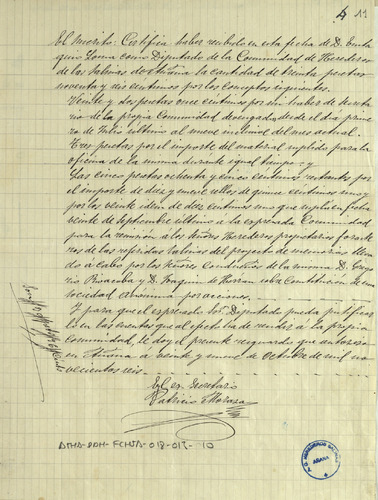 4 11
El suscrito: Certifica haber recibido en esta fecha de D. Eusta
quio Loma como Diputado de la Comunidad de Herederos
de las Salinas de Añana la cantidad de treinta pesetas
noventa y seis centimos por los conceptos siguientes.
Veinte y dos pesetas once centimos por su haber de Secreta
rio de la propia Comunidad devengado desde el dia prime
ro de Julio ultimo al nueve inclusive del mes actual.
Tres pesetas por el importe del material suplido para la
oficina de la misma durante igual tiempo: y
Las cinco pesetas ochenta y cinco centimos restantes por
el importe de diez y nueve sellos de quince centimos uno y
por los veinte idem de diez centimos uno que suplió en fecha
veinte de Septiembre ultimo á la expresada Comunidad
para la remision á los Señores Herederos propietarios foraste
ros de las referidas Salinas del proyecto de memorias lleva
do á cabo por los Señores Condueños de la misma D. Grego
rio Pinacoba y D. Joaquin de Herran sobre Constitucion de una
sociedad Anonima por acciones.
Y para que el expresado Sor. Diputado pueda justificar
lo en las cuentas que al efecto ha de rendir á la propia
Comunidad, le doy el presente resguardo que autorizo en
Añana á veinte y nueve de Octubre de mil no
vecientos seis
El ex-Secretario
Patricio Moraza
ATHA-DAH-FCHSA-018-017-10
AÑANA